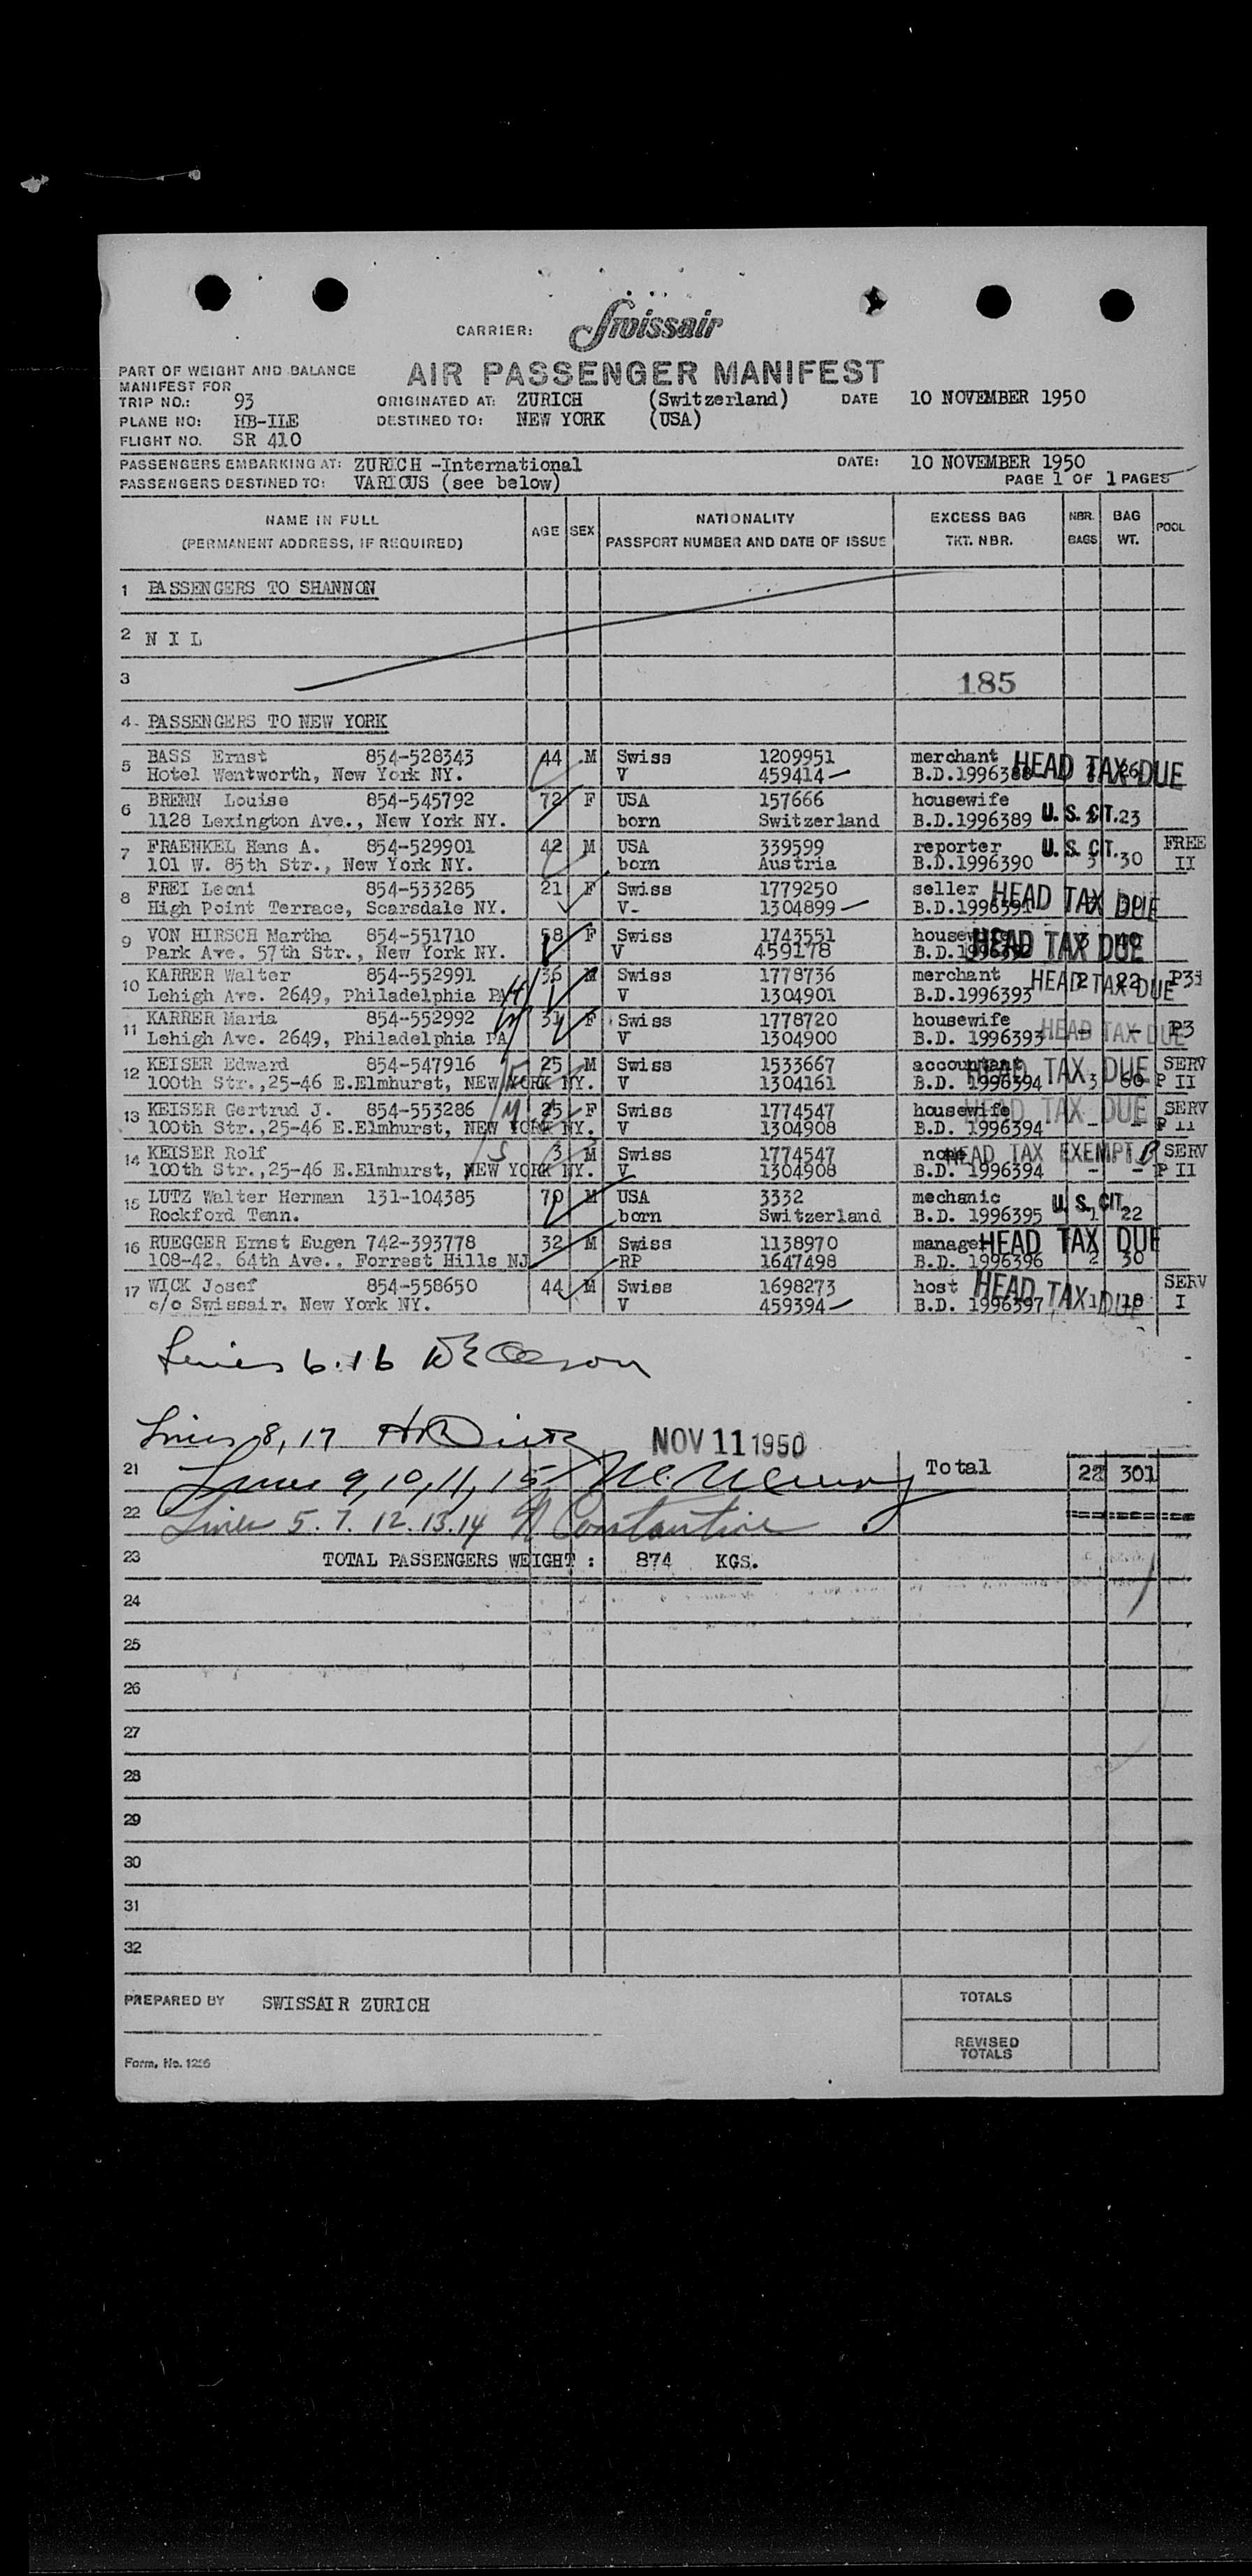 CARRIER: Swissair
PART OF WEIGHT AND BALANCE
MANIFEST FOR
AIR PASSENGER MANIFEST
TRIP NO.: 93 ORIGINATED AT: ZURICH (Switzerland) DATE 10 NOVEMBER 1950
PLANE NO: HB-ILE DESTINED TO: NEW YORK (USA)
FLIGHT NO. SR 410
PASSENGERS EMBARKING AT: ZURICH -International DATE: 10 NOVEMBER 1950
PASSENGERS DESTINED TO: VARIOUS (see below) PAGE 1 OF 1 PAGES
NAME IN FULL AGE SEX NATIONALITY EXCESS BAG NBR. BAG POOL
(PERMANENT ADDRESS, IF REQUIRED) PASSPORT NUMBER AND DATE OF ISSUE TKT. NBR. BAGS WT.
1 PASSENGERS TO SHANNON
2 N I L
3 185
4. PASSENGERS TO NEW YORK
5 BASS Ernst 854-528343 44 M Swiss 1209951 merchant HEAD TAX DUE
Hotel Wentworth, New York NY. V 459414 B.D.1996388
6 BRENN Louise 854-545792 72 F USA 157666 housewife
1128 Lexington Ave., New York NY. born Switzerland B.D.1996389 U. S. CIT. 23
7 FRAENKEL Hans A. 854-529901 42 M USA 339599 reporter U. S. CIT. FREE
101 W. 85th Str., New York NY. born Austria B.D.1996390 3 30 II
8 FREI Leoni 854-533285 21 F Swiss 1779250 seller HEAD TAX DUE
High Point Terrace, Scarsdale NY. V- 1304899 B.D.1996391
9 VON HIRSCH Martha 854-551710 58 F Swiss 1743551 housewife HEAD TAX DUE
Park Ave. 57th Str., New York NY. V 459178 B.D.
10 KARRER Walter 854-552991 36 M Swiss 1778736 merchant HEAD TAX DUE P3
Lehigh Ave. 2649, Philadelphia PA V 1304901 B.D.1996393
11 KARRER Maria 854-552992 31 F Swiss 1778720 housewife HEAD TAX DUE P3
Lehigh Ave. 2649, Philadelphia PA V 1304900 B.D. 1996393 - -
12 KEISER Edward 854-547916 25 M Swiss 1533667 accountant HEAD TAX DUE SERV
100th Str.,25-46 E.Elmhurst, NEW YORK NY. V 1304161 B.D. 1996394 3 60 P II
13 KEISER Gertrud J. 854-553286 25 F Swiss 1774547 housewife HEAD TAX DUE SERV
100th Str.,25-46 E.Elmhurst, NEW YORK NY. V 1304908 B.D. 1996394 - - P II
14 KEISER Rolf 3 M Swiss 1774547 none HEAD TAX EXEMPT SERV
100th Str.,25-46 E.Elmhurst, NEW YORK NY. V 1304908 B.D. 1996394 - - P II
15 LUTZ Walter Herman 131-104385 70 M USA 3332 mechanic U. S. CIT.
Rockford Tenn. born Switzerland B.D. 1996395 1 22
16 RUEGGER Ernst Eugen 742-393778 32 M Swiss 1138970 manager HEAD TAX DUE
108-42, 64th Ave., Forrest Hills NJ RP 1647498 B.D. 1996396 2 30
17 WICK Josef 854-558650 44 M Swiss 1698273 host HEAD TAX DUE SERV
c/o Swissair, New York NY. V 459394 B.D. 1996397 1 18 I
Lines 6.16
Lines 8, 17 NOV 11 1950
21 Lines 9, 10, 11, 15 Total 22 301
22 Lines 5. 7. 12. 13. 14 Constantine
23 TOTAL PASSENGERS WEIGHT : 874 KGS.
24
25
26
27
28
29
30
31
32
PREPARED BY SWISSAIR ZURICH TOTALS
REVISED
TOTALS
Form. No. 1256